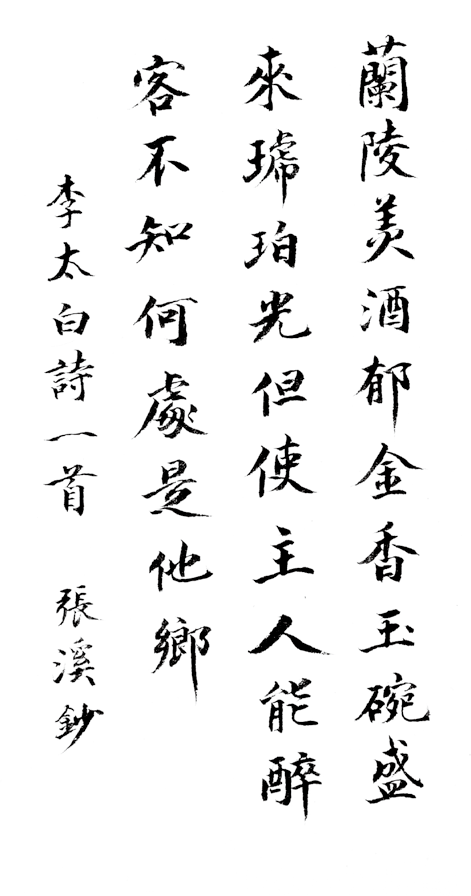 蘭陵美酒郁金香玉碗盛
來琥珀光但使主人能醉
客不知何處是他鄉
李太白詩一首 張溪鈔